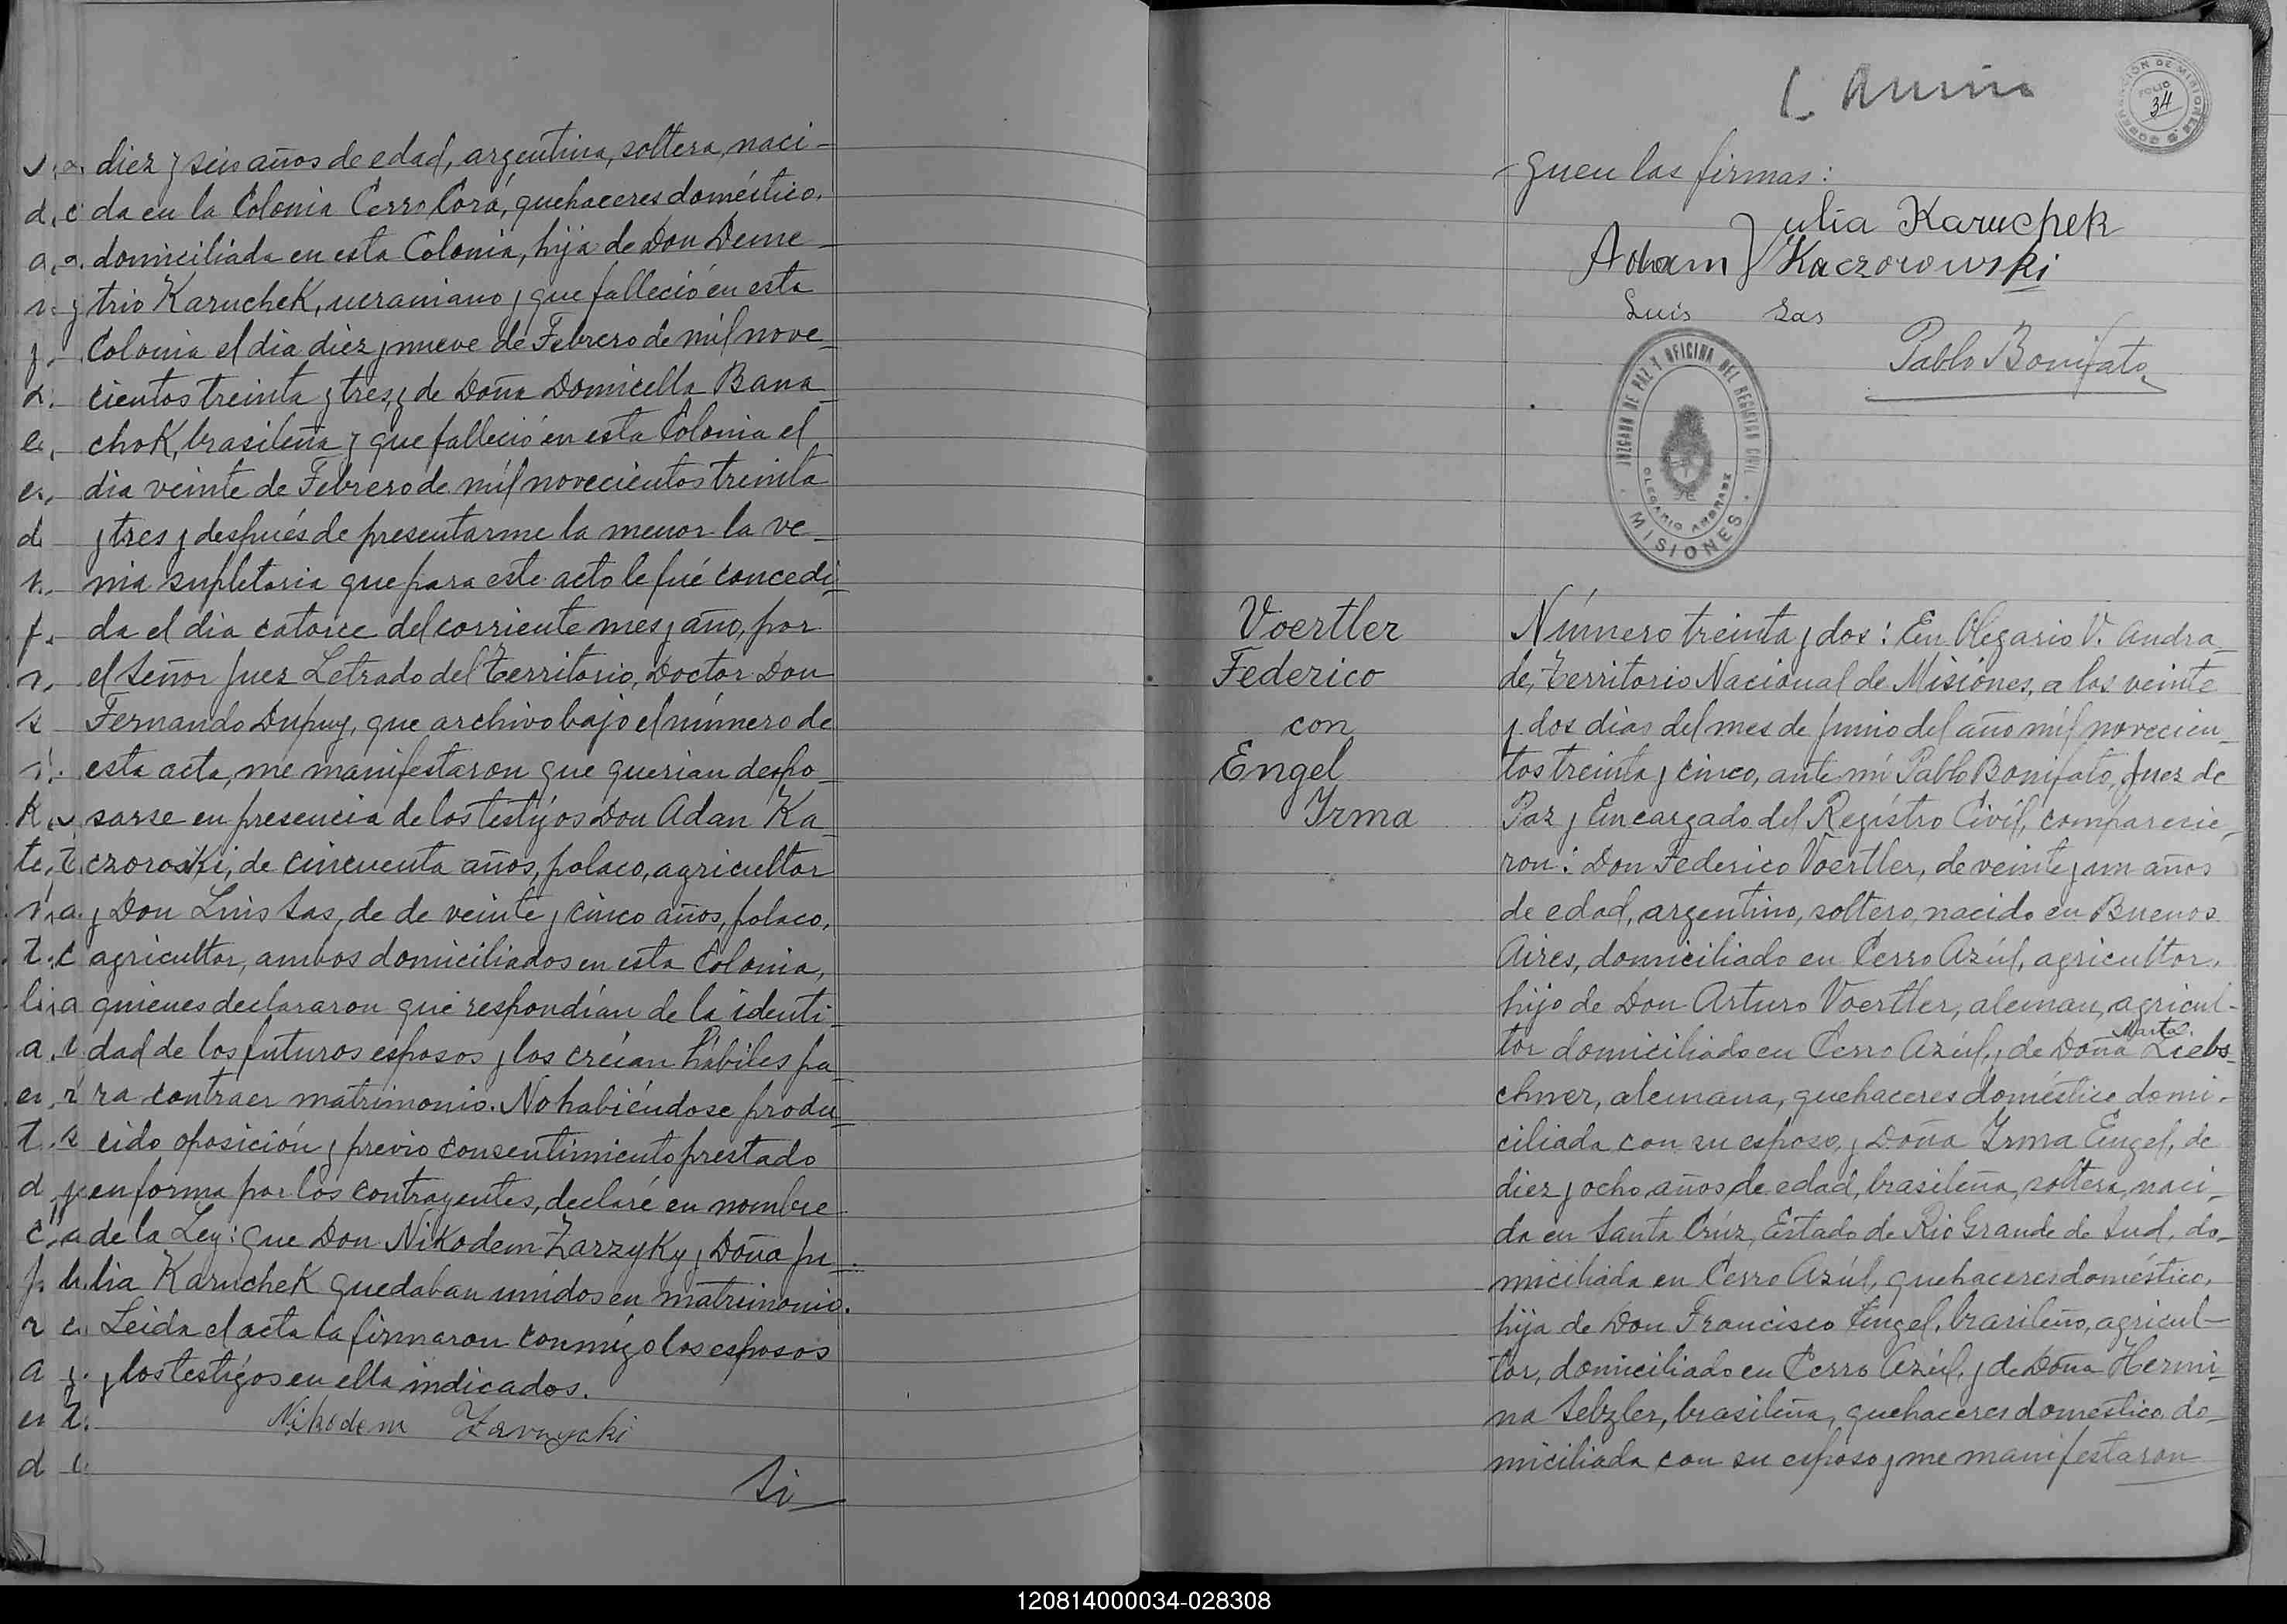 diez y seis años de edad, argentina, soltera, naci-
da en la Colonia Cerro Corá, quehaceres doméstico,
domiciliada en esta Colonia, hija de Don Deme-
trio Karuchek, ucraniano y que falleció en esta
Colonia el dia diez y nueve de Febrero de mil nove-
cientos treinta y tres, y de Doña Domicella Bana-
chok, brasileña y que falleció en esta Colonia el
dia veinte de Febrero de mil novecientos treinta
y tres y después de presentarme la menor la ve-
nia supletoria que para este acto le fué concedi-
da el dia catorce del corriente mes y año, por
el Señor Juez Letrado del Territorio, Doctor Don
Fernando Dupuy, que archivo bajo el número de
esta acta, me manifestaron que querian despo-
sarse en presencia de los testigos Don Adan Ka-
czoroski, de cincuenta años, polaco, agricultor
y Don Luis Sas, de de veinte y cinco años, polaco,
agricultor, ambos domiciliados en esta Colonia,
quienes declararon que respondían de la identi-
dad de los futuros esposos y los creían hábiles pa-
ra contraer matrimonio. No habiéndose produ-
cido oposición y previo consentimiento prestado
en forma por los contrayentes, declaré en nombre
de la Ley: que Don Nikodem Zarzyky y Doña Ju-
lia Karuchek quedaban unidos en matrimonio.
Leida el acta la firmaron conmigo los esposos
y los testigos en ella indicados.
Nikodem
Si-
GOBERNACIÓN DE MISIONES
FOLIO
34
guen las firmas:
Julia Karuchek
Adam Kaczorowski
Luis Sas
Pablo Bonifato
JUZGADO DE PAZ Y OFICINA DEL REGISTRO CIVIL
OLEGARIO ANDRADE
MISIONES
Voertler
Federico
con
Engel
Yrma
Número treinta y dos: En Olegario V. Andra-
de, Territorio Nacional de Misiones, a los veinte
y dos dias del mes de Junio del año mil novecien-
tos treinta y cinco, ante mí Pablo Bonifato, Juez de
Paz y Encargado del Registro Civíl, comparecie-
ron: Don Federico Voertler, de veinte y un años
de edad, argentino, soltero, nacido en Buenos
Aires, domiciliado en Cerro Azúl, agricultor,
hijo de Don Arturo Voertler, aleman, agricul-
tor domiciliado en Cerro Azúl, y de Doña Marta Liebs-
chner, alemana, quehaceres doméstico domi-
ciliada con su esposo, y Doña Yrma Engel, de
diez y ocho años de edad, brasileña, soltera, naci-
da en Santa Crúz, Estado de Rio Grande de Sud, do-
miciliada en Cerro Azúl, quehaceres doméstico,
hija de Don Francisco Engel, brasileño, agricul-
tor, domiciliado en Cerro Azúl, y de Doña Hermi-
na Selzler, brasileña, quehaceres doméstico do-
miciliada con su esposo y me manifestaron
120814000034-028308